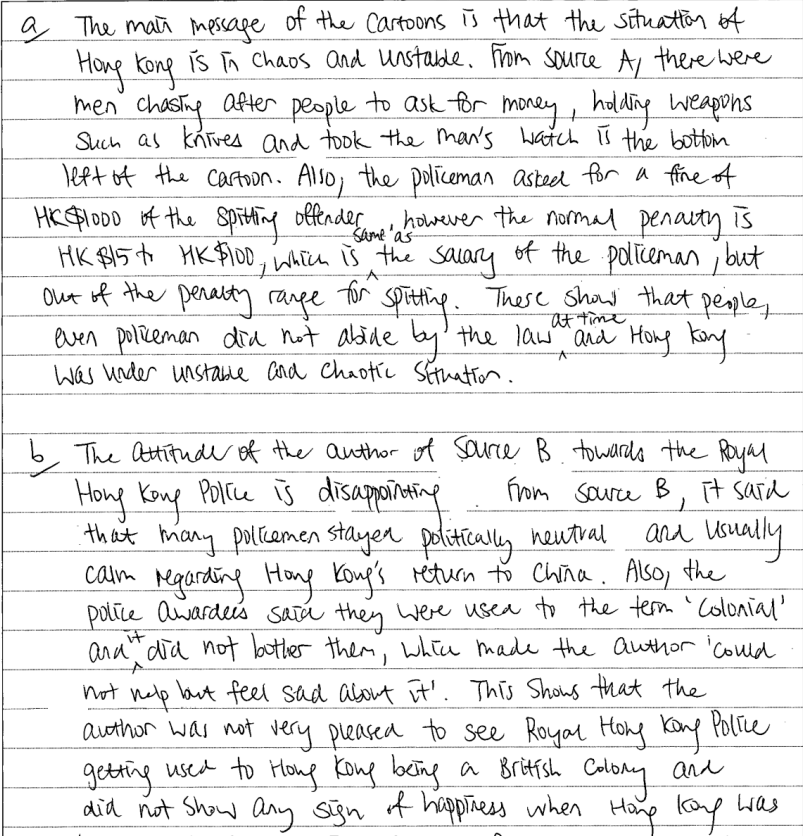 a The main message of the cartoons is that the situation of
Hong Kong is in chaos and unstable. From source A, there were
men chasing after people to ask for money, holding weapons
such as knives and took the man's watch is the bottom
left of the cartoon. Also, the policeman asked for a fine of
HK$1000 of the spitting offender, however the normal penalty is
HK $15 to HK$100, which is same as the salary of the policeman, but
out of the penalty range for spitting. These show that people,
even policeman did not abide by the law at time and Hong Kong
was under unstable and chaotic situation.
b The attitude of the author of source B towards the Royal
Hong Kong Police is disappointing. From source B, it said
that many policemen stayed politically neutral and usually
calm regarding Hong Kong's return to China. Also, the
police awardees said they were used to the term 'colonial'
and it did not bother them, which made the author 'could
not help but feel sad about it'. This shows that the
author was not very pleased to see Royal Hong Kong Police
getting used to Hong Kong being a British Colony and
did not show any sign of happiness when Hong Kong was